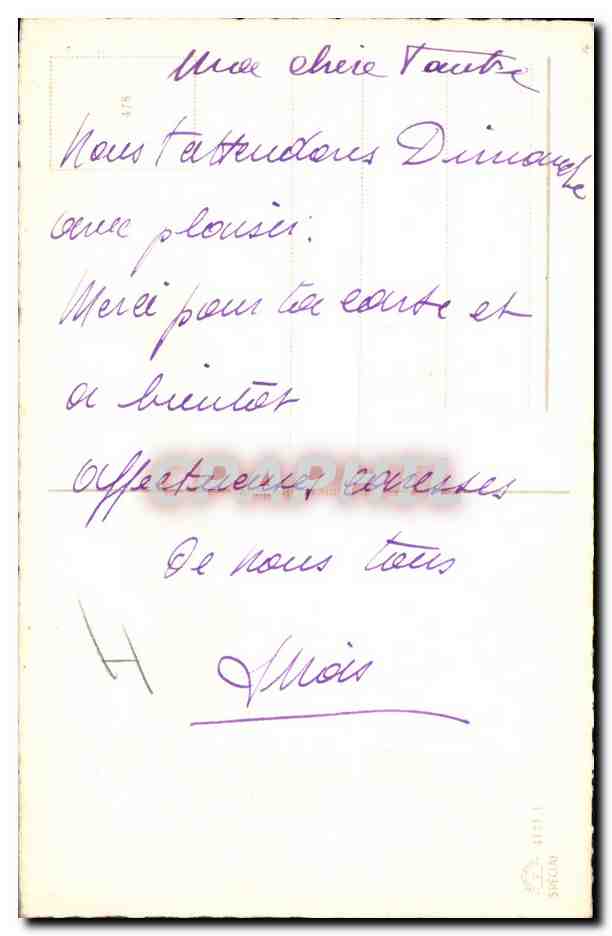 Ma chère Tante
Nous t'attendons Dimanche
avec plaisir.
Merci pour ta carte et
a bientôt
affectueuses caresses
de nous tous
H
478
SPECIAL